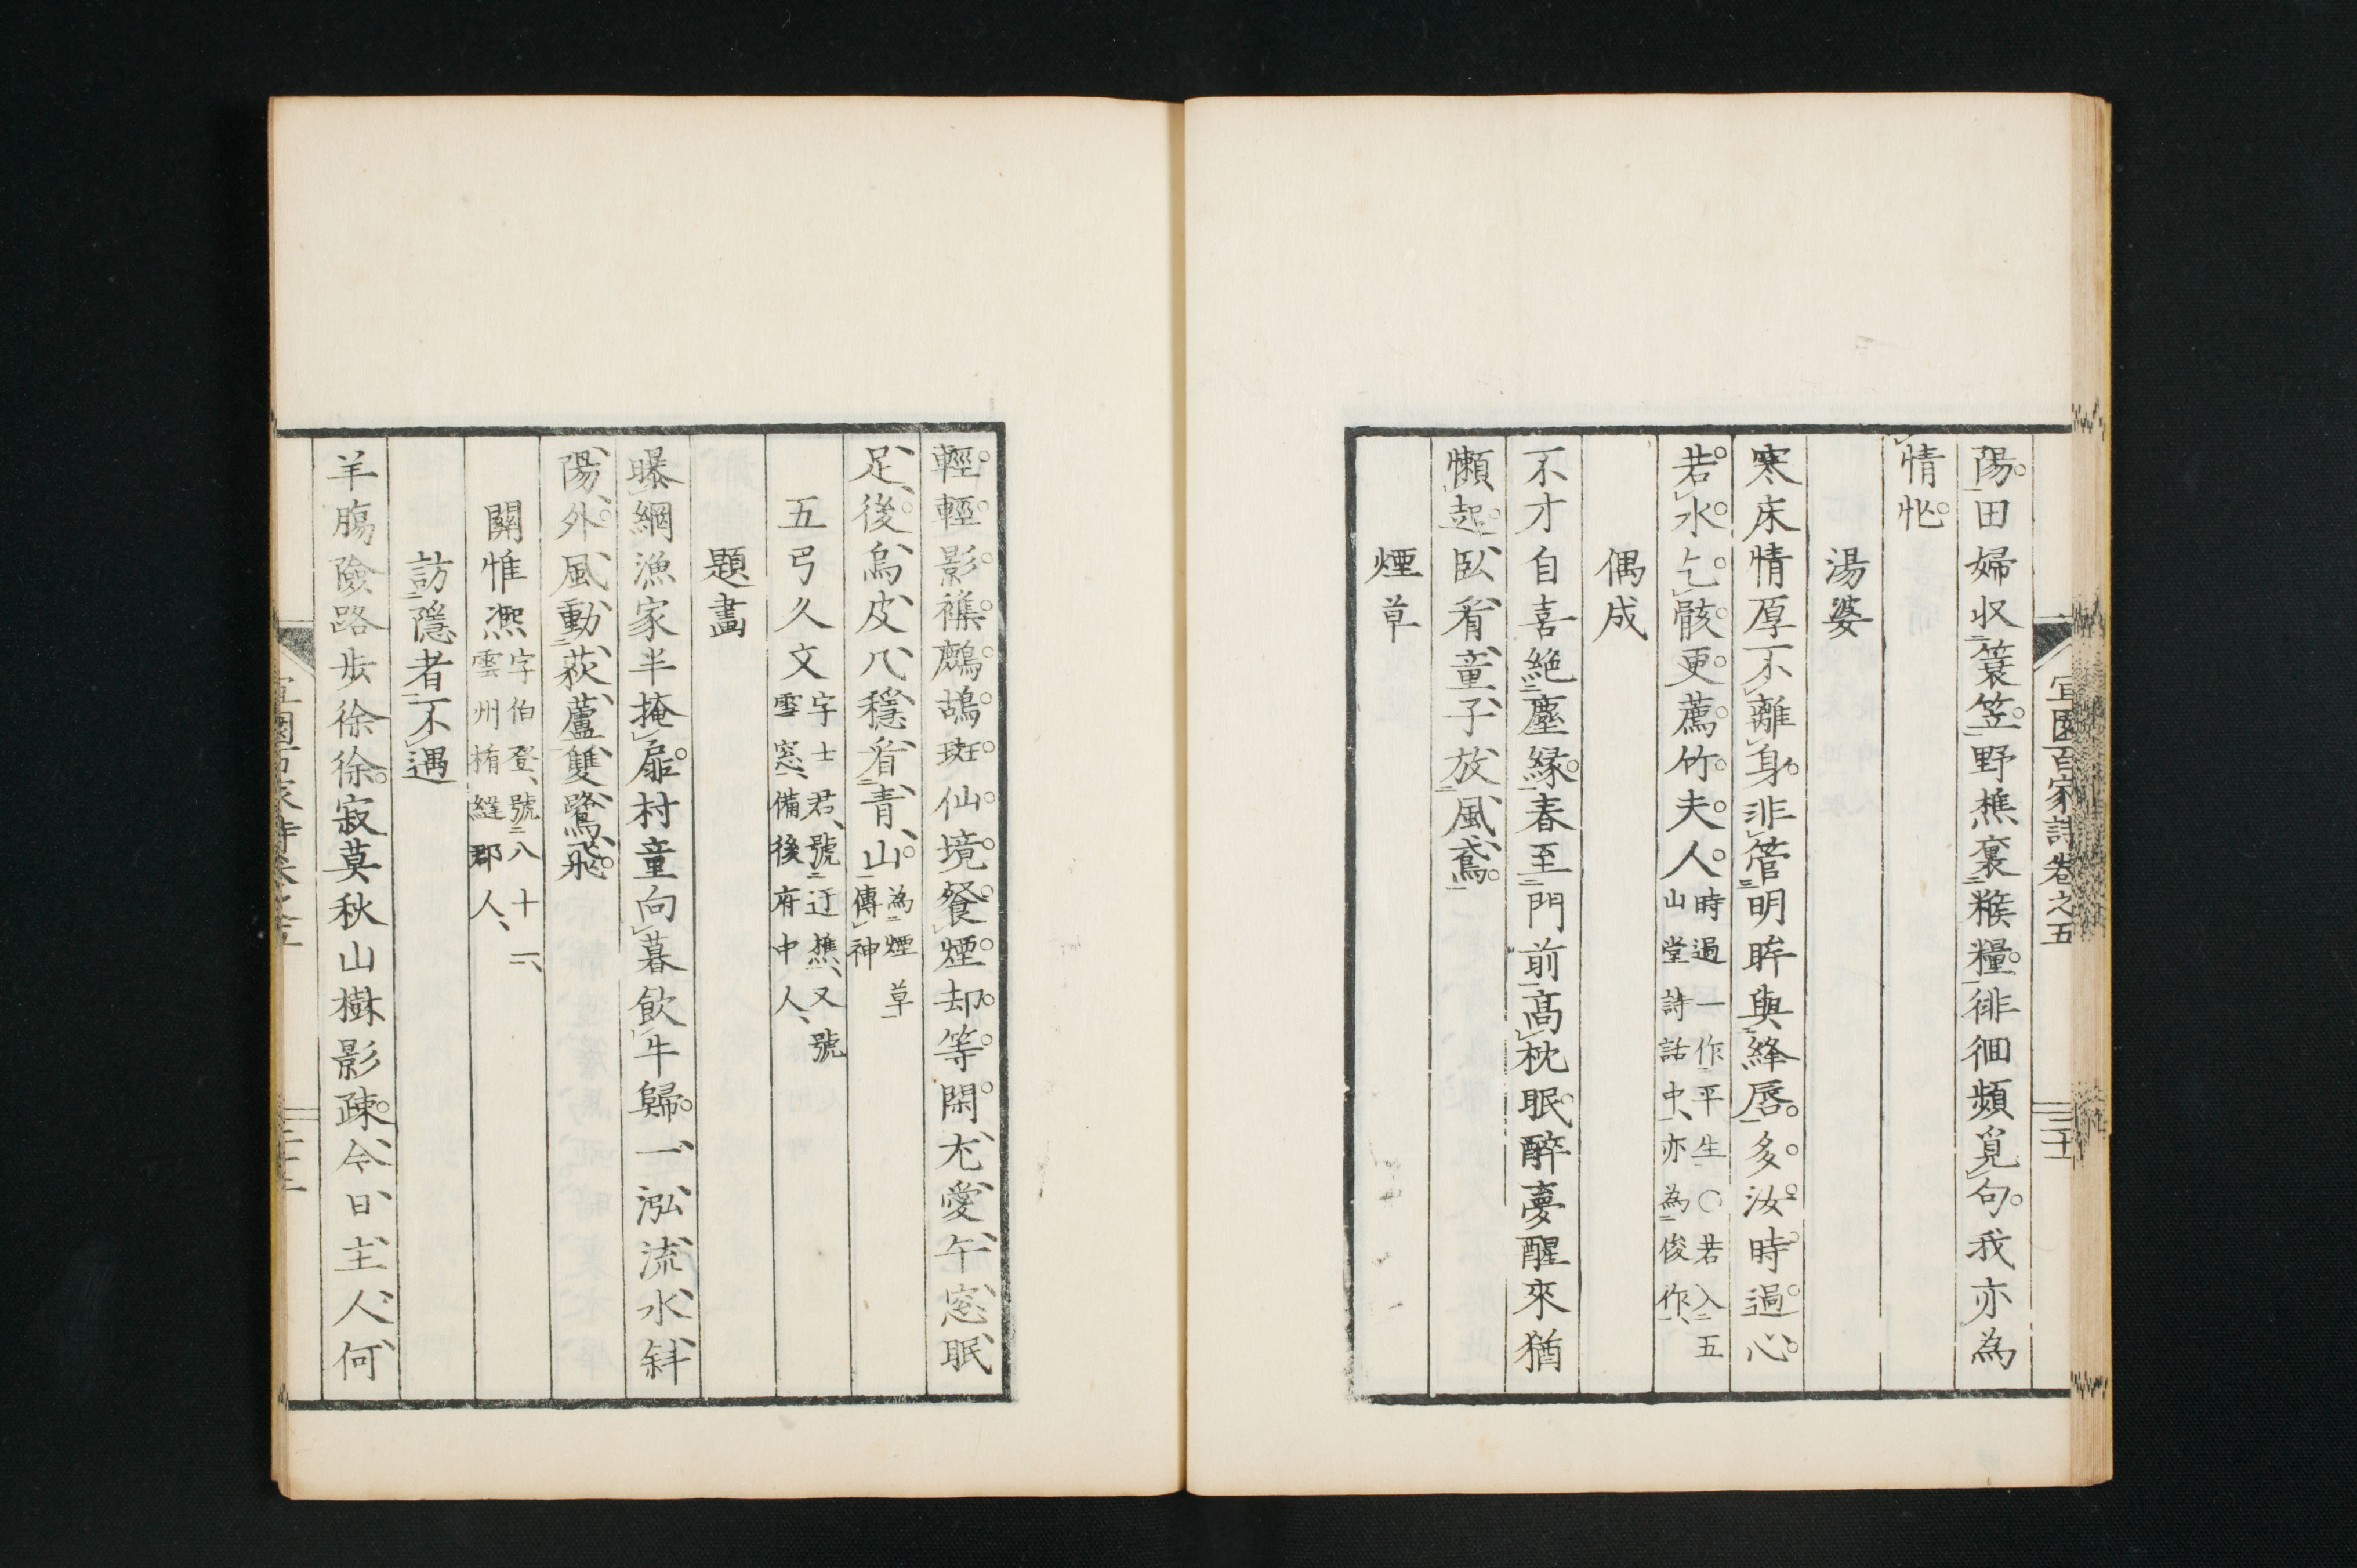 宜園百家詩卷之五
三十
陽田婦収簑笠野樵裹糇糧徘徊頻覓句我亦為
情忙
湯婆
寒床情厚不離身非管明眸與絳唇多汝時過心
若水乞骸更薦竹夫人時過一作平生〇若入五
山堂詩話中亦為俊作
偶成
不才自喜絶塵縁春至門前高枕眠醉夢醒來猶
懶起臥看童子放風鳶
煙草
輕輕影襍鷓鴣斑仙境餐煙却等閑尤愛午窓眠
足後烏皮八穏看青山為煙草
傳神
五弓久文字士君號迂樵又號
雪窓備後府中人
題畫
曝網漁家半掩扉村童向暮飲牛歸一泓流水斜
陽外風動荻蘆雙鷺飛
關惟凞字伯登號八十二
雲州楯縫郡人
訪隱者不遇
羊膓險路歩徐徐寂莫秋山樹影疎今日主人何